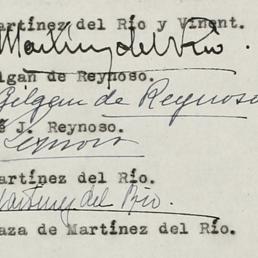 artínez del Río y Vinent.
Martínez del Río.
lgan de Reynoso.
Bilgan de Reynoso
é J. Reynoso.
Reynoso
artínez del Río.
Martínez del Río.
aza de Martínez del Río.